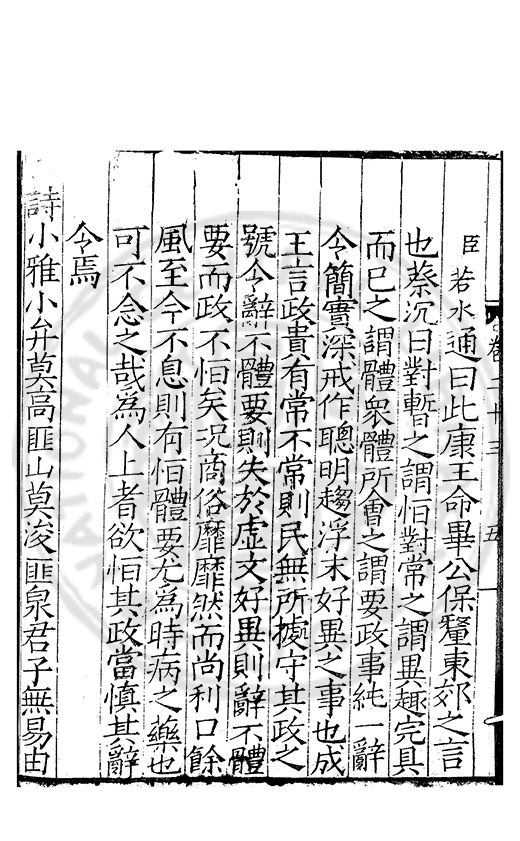 卷二十三 五
臣若水通曰此康王命畢公保釐東郊之言
也蔡沉曰對暫之謂恒對常之謂異趣完具
而已之謂體衆體所會之謂要政事純一辭
令簡實深戒作聰明趨浮末好異之事也成
王言政貴有常不常則民無所據守其政之
號令辭不體要則失於虚文好異則辭不體
要而政不恒矣况商俗靡靡然而尚利口餘
風至今不息則有恒體要尤為時病之藥也
可不念之哉為人上者欲恒其政當慎其辭
令焉
詩小雅小弁莫高匪山莫浚匪泉君子無易由